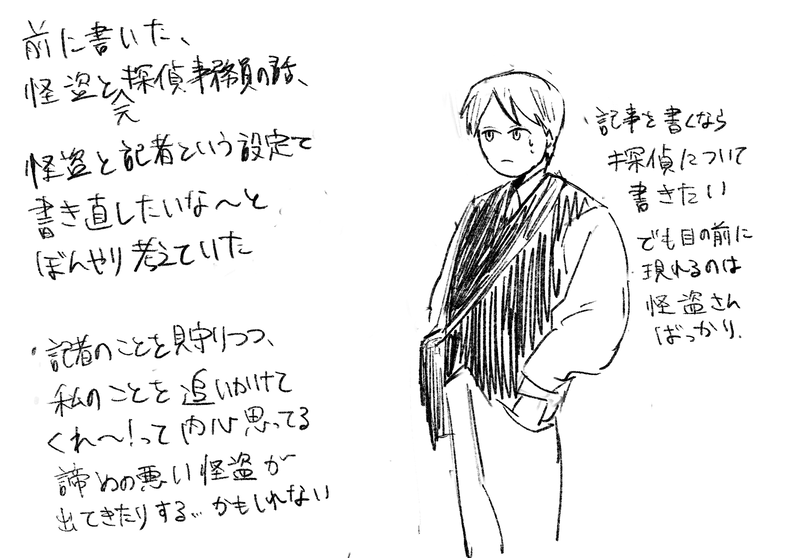 前に書いた、
怪盗と元探偵事務員の話、
怪盗と記者という設定で
書き直したいな〜と
ぼんやり考えていた
・記者のことを見守りつつ、
私のことを追いかけて
くれ〜!って内心思ってる
諦めの悪い怪盗が
出てきたりする…かもしれない
・記事を書くなら
探偵について
書きたい
でも目の前に
現れるのは
怪盗さん
ばっかり.